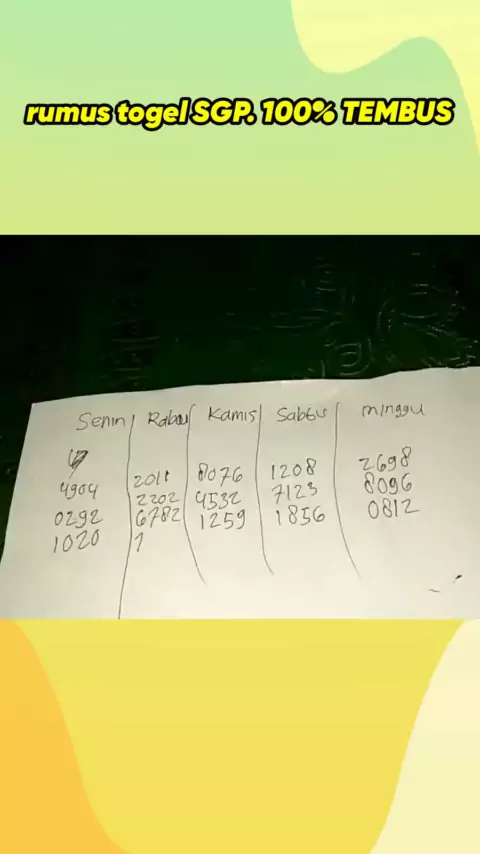 rumus togel SGP. 100% TEMBUS
Senin Rabu Kamis Sabtu minggu
4904 2011 8076 1208 2698
0292 2202 4532 7123 8096
1020 6782 1259 1856 0812
1